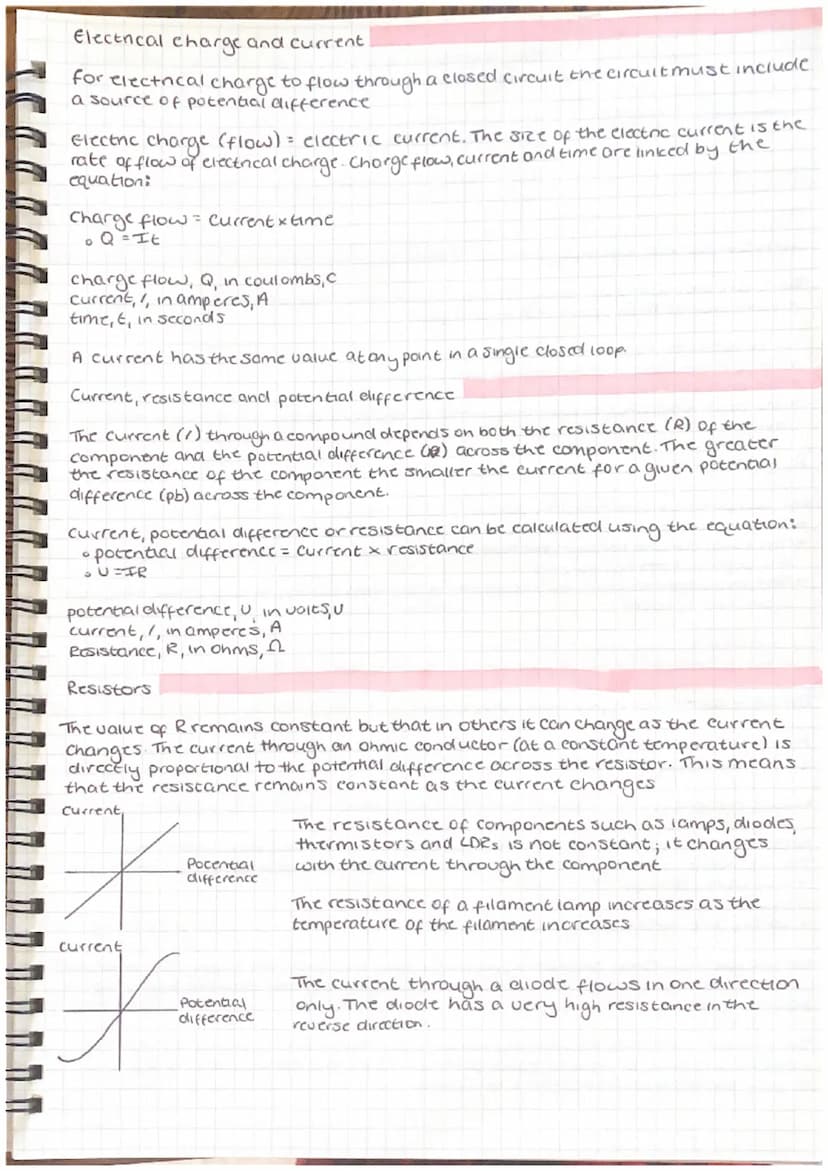 Electrical charge and current
for electrical charge to flow through a closed circuit the circuit must include
a source of potential difference
Electric charge (flow) = electric current. The size of the electric current is the
rate of flow of electrical charge. Charge flow, current and time are linked by the
equation:
Charge flow = current × time
∘ Q = It
charge flow, Q, in coulombs, C
current, I, in amperes, A
time, t, in seconds
A current has the same value at any point in a single closed loop.
Current, resistance and potential difference
The current (I) through a compound depends on both the resistance (R) of the
component and the potential difference () across the component. The greater
the resistance of the component the smaller the current for a given potential
difference (pb) across the component.
Current, potential difference or resistance can be calculated using the equation:
∘ potential difference = current × resistance
∘ V = IR
potential difference, V, in volts, V
current, I, in amperes, A
Resistance, R, in ohms, Ω
Resistors
The value of R remains constant but that in others it can change as the current
changes. The current through an ohmic conductor (at a constant temperature) is
directly proportional to the potential difference across the resistor. This means
that the resistance remains constant as the current changes
Current
Potential
difference
The resistance of components such as lamps, diodes,
thermistors and LDRs is not constant; it changes
with the current through the component
The resistance of a filament lamp increases as the
temperature of the filament increases
current
Potential
difference
The current through a diode flows in one direction
only. The diode has a very high resistance in the
reverse direction.